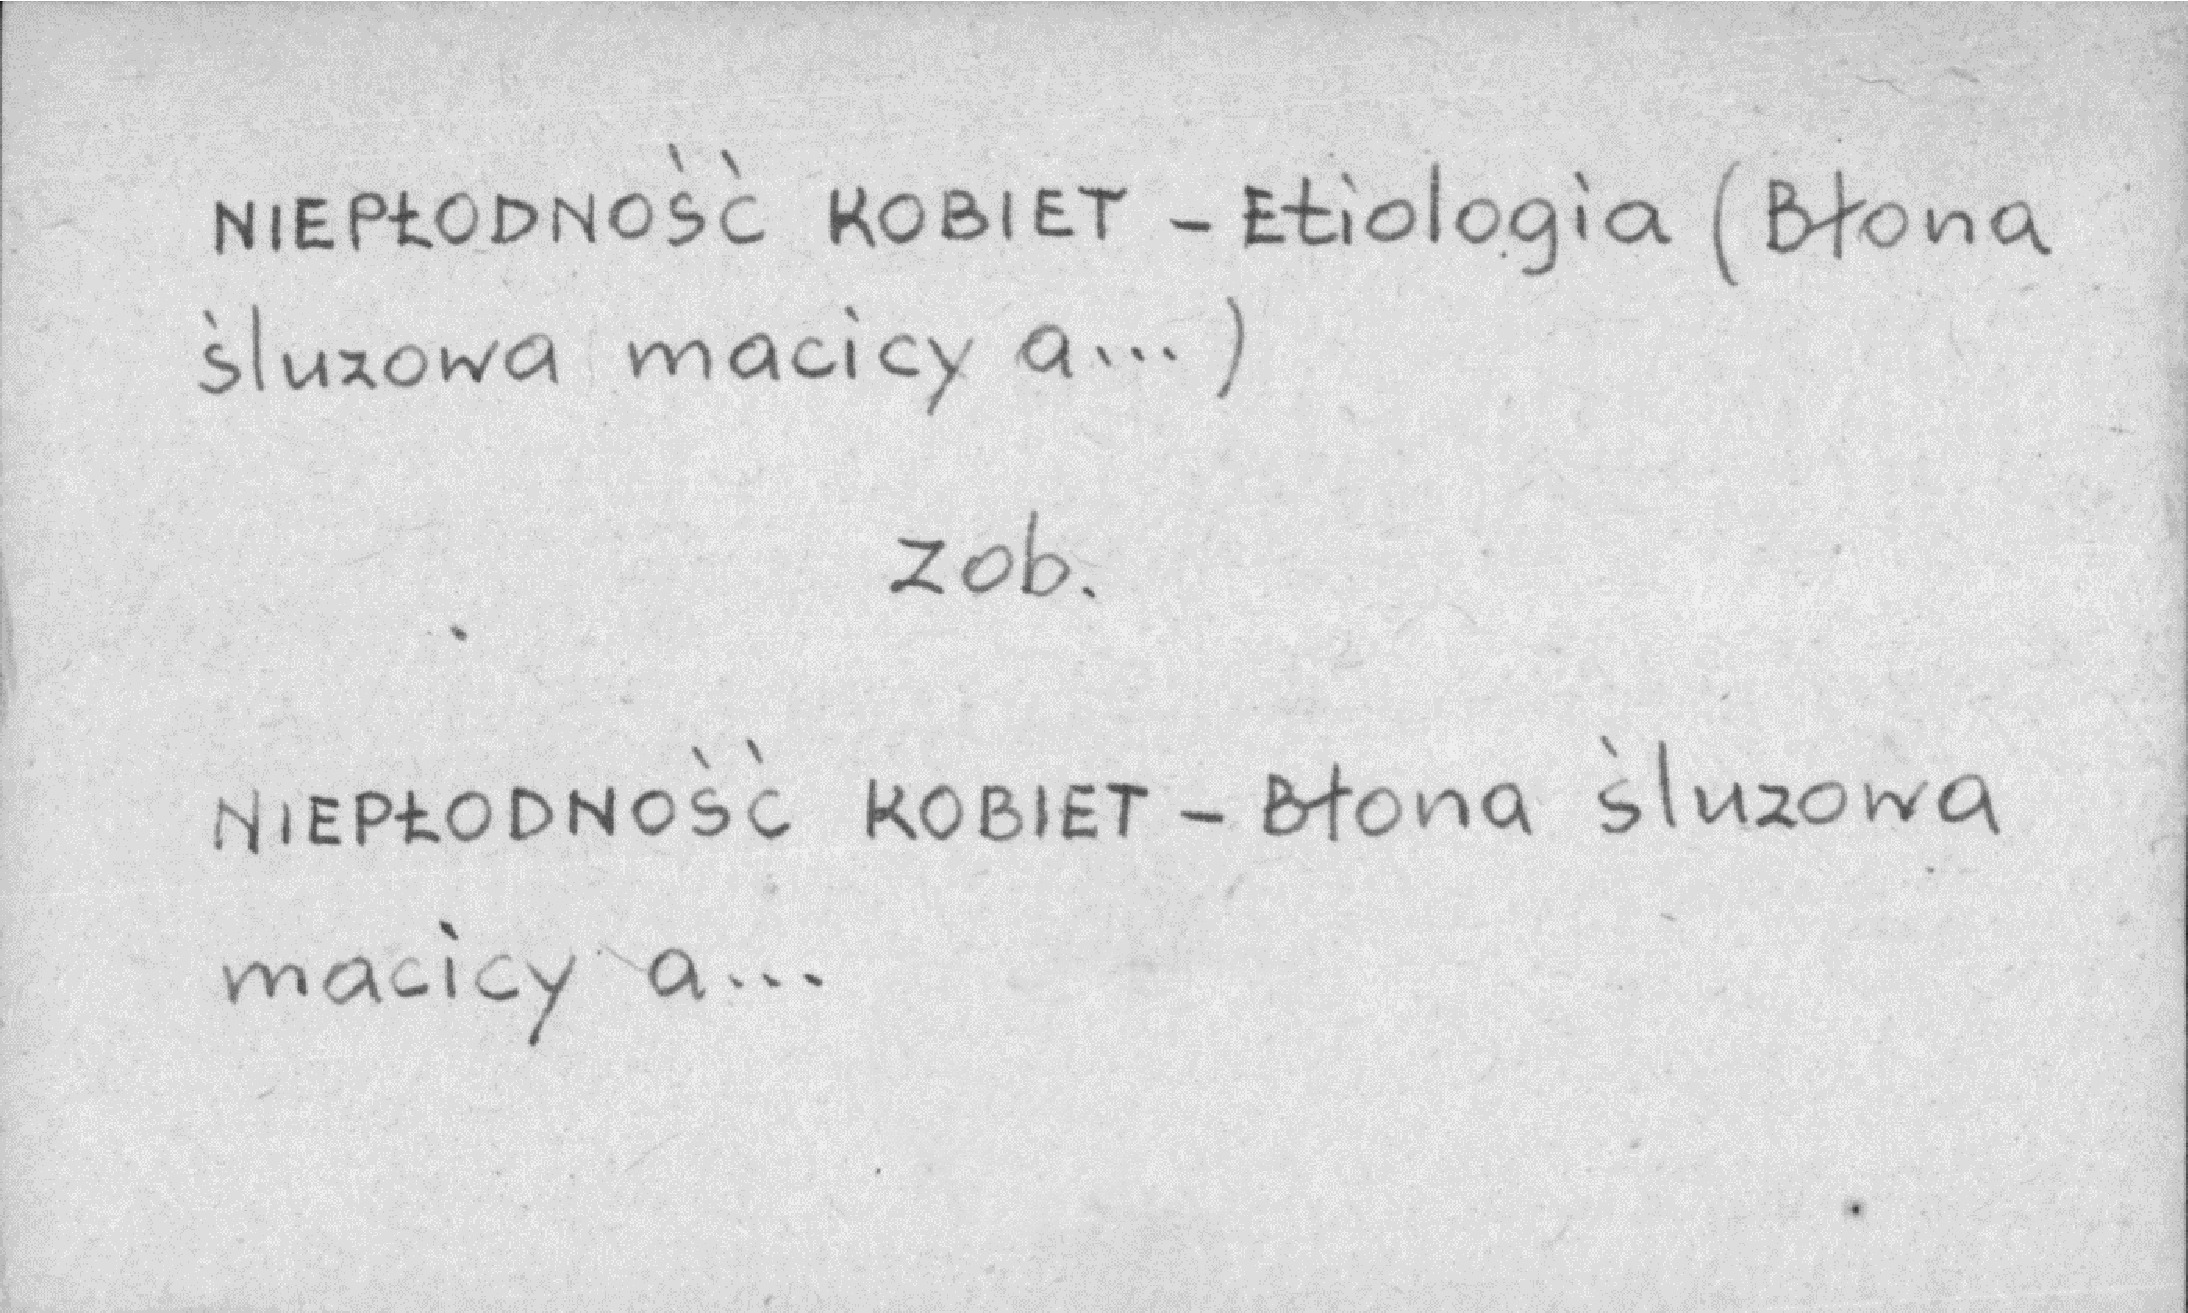 NIEPŁODNOŚĆ KOBIET - Etiologia (Błona
śluzowa macicy a...)
zob.
NIEPŁODNOŚĆ KOBIET - Błona śluzowa
macicy a...